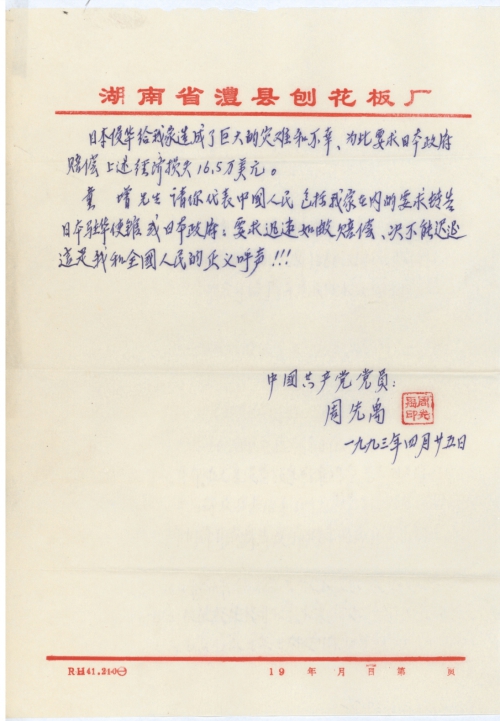 湖南省澧县刨花板厂
日本侵华给我家造成了巨大的灾难和不幸、为此要求日本政府
赔偿上述经济损失16.5万美元。
童增先生 请你代表中國人民 包括我家在内的要求转告
日本驻华使館 或日本政府：要求迅速如数赔偿、决不能迟迟
這是我和全國人民的正义呼声!!!
中國共产党党员：
周先禹
周先禹印
一九九三年四月廿五日
RH41.210
19 年 月 日 第 页